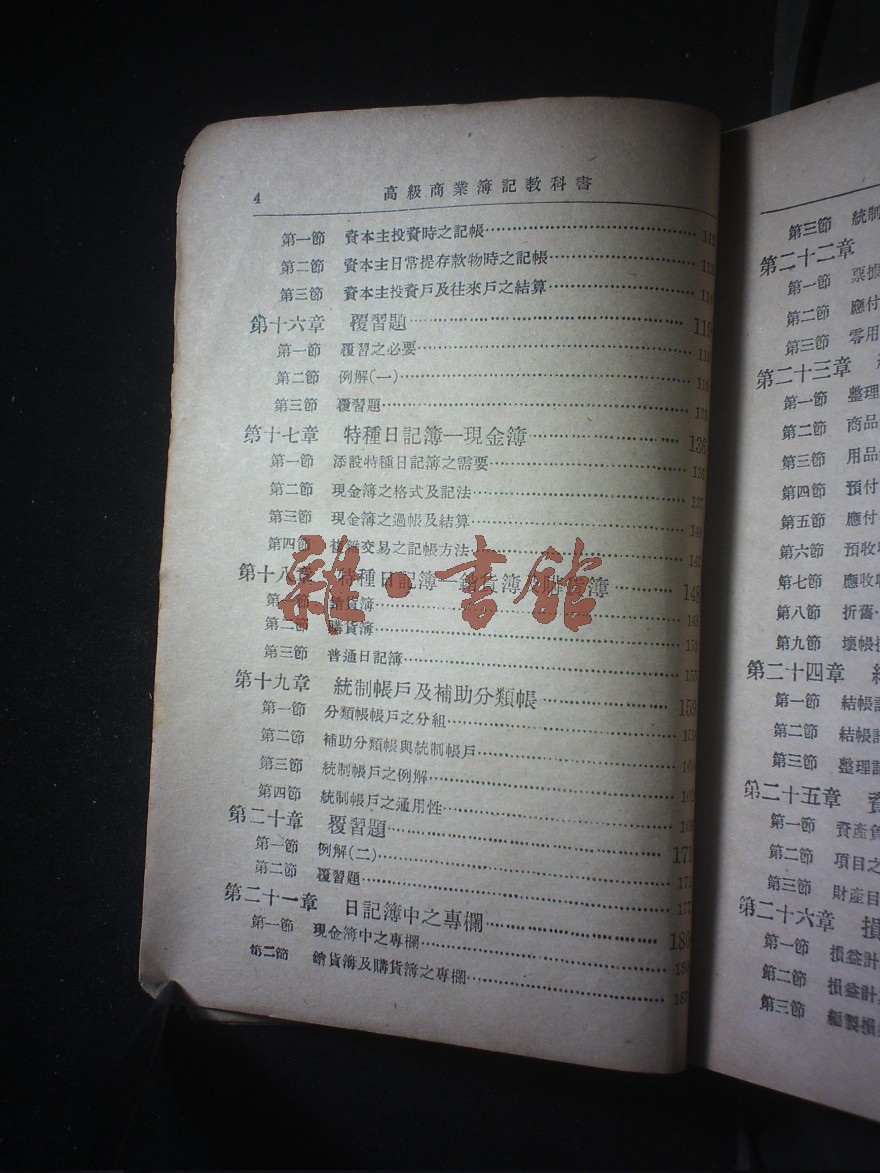 4 高級商業簿記教科書
第一節 資本主投資時之記帳
第二節 資本主日常提存款物時之記帳
第三節 資本主投資戶及往來戶之結算
第十六章 覆習題 119
第一節 覆習之必要
第二節 例解(一)
第三節 覆習題
第十七章 特種日記簿—現金簿 136
第一節 添設特種日記簿之需要 136
第二節 現金簿之格式及記法 137
第三節 現金簿之過帳及結算
第四節 複雜交易之記帳方法
第十八章 特種日記簿—銷貨簿及購貨簿 148
第一節 銷貨簿
第二節 購貨簿
第三節 普通日記簿
第十九章 統制帳戶及補助分類帳 159
第一節 分類帳帳戶之分組
第二節 補助分類帳與統制帳戶
第三節 統制帳戶之例解
第四節 統制帳戶之通用性
第二十章 覆習題 171
第一節 例解(二) 171
第二節 覆習題
第二十一章 日記簿中之專欄 180
第一節 現金簿中之專欄
第二節 銷貨簿及購貨簿之專欄
雜·書館
第三節 統制
第二十二章
第一節 票據
第二節 應付
第三節 零用
第二十三章
第一節 整理
第二節 商品
第三節 用品
第四節 預付
第五節 應付
第六節 預收
第七節 應收
第八節 折舊
第九節 壞帳
第二十四章
第一節 結帳
第二節 結帳
第三節 整理
第二十五章 資
第一節 資產
第二節 項目之
第三節 財產目
第二十六章 損
第一節 損益計
第二節 損益計
第三節 編製損